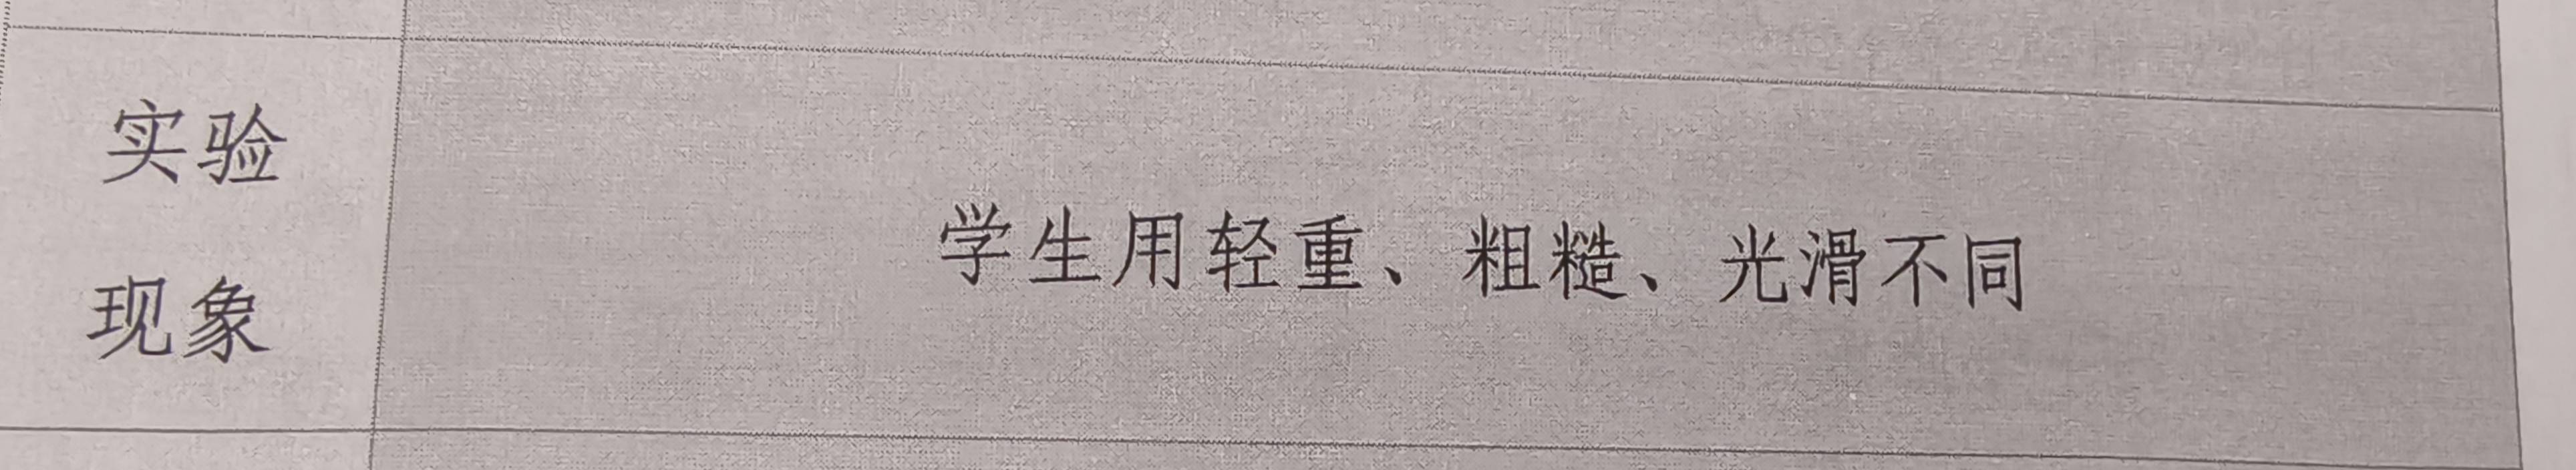 实验
现象
学生用轻重、粗糙、光滑不同